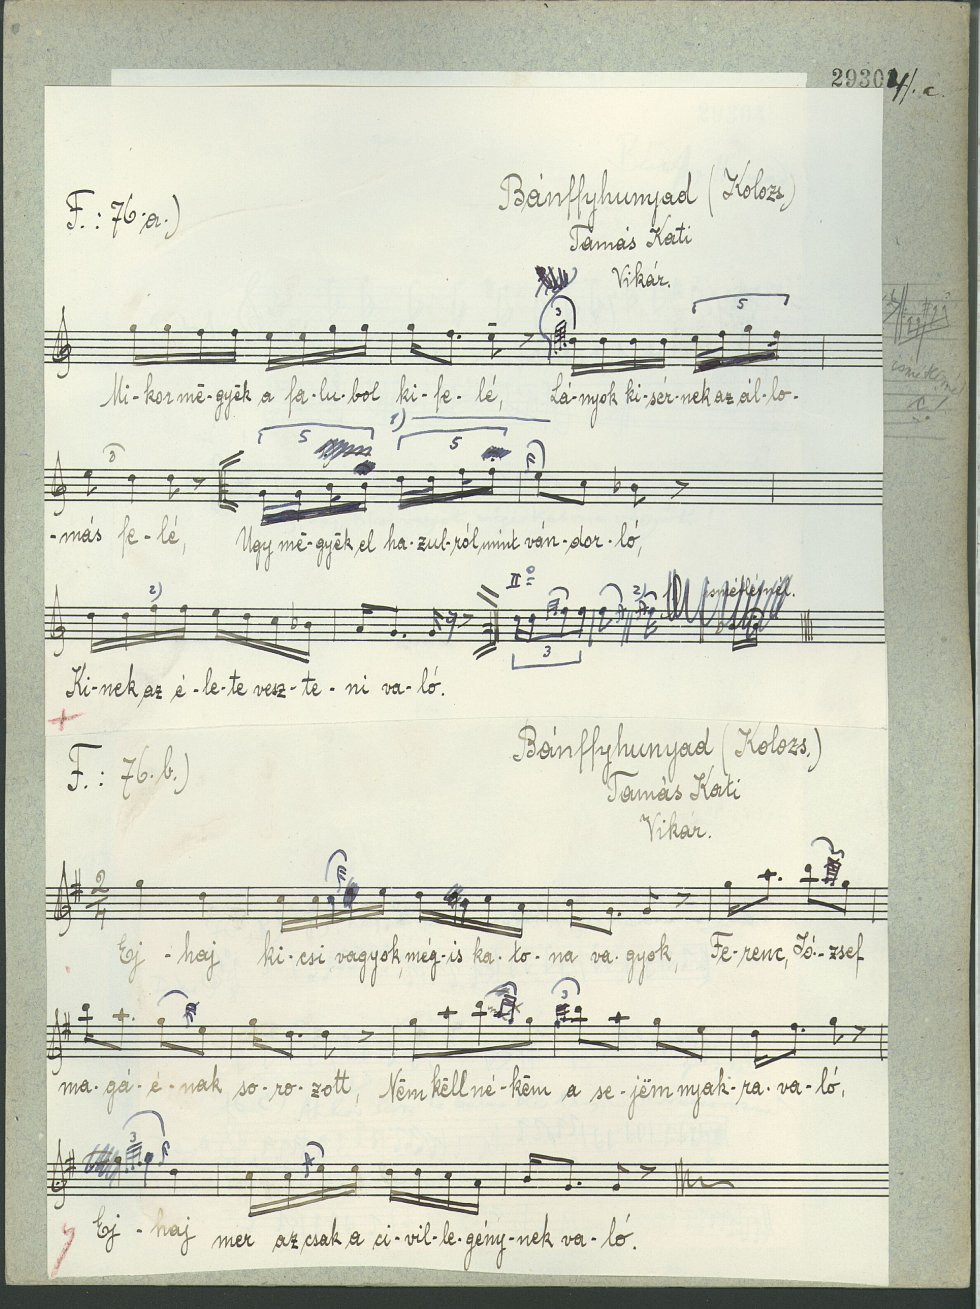 29301/. c.
F.: 76.a.)
Bánffyhunyad (Kolozs)
Tamás Kati
Vikár.
3
5
Mi-kor mē-gyek a fa-lu-bol ki-fe-lé, Lá-nyok ki-sér-nek az ál-lo-
1)
5 5
-más fe-lé, Ugy mē-gyēk el ha-zul-ról, mint ván-dor-ló,
2) II° 2) ismétlésnél.
3
Ki-nek az é-le-te vesz-te-ni va-ló.
F.: 76.b.)
Bánffyhunyad (Kolozs.)
Tamás Kati
Vikár.
2/4
Ej-haj ki-csi vagyok, még-is ka-to-na va-gyok, Fe-renc, Jó-zsef
3
ma-gá-é-nak so-ro-zott, Nēm kēll né-kēm a se-jēm nyak-ra-va-ló,
3
Ej-haj mer az csak a ci-vil-le-gény-nek va-ló.